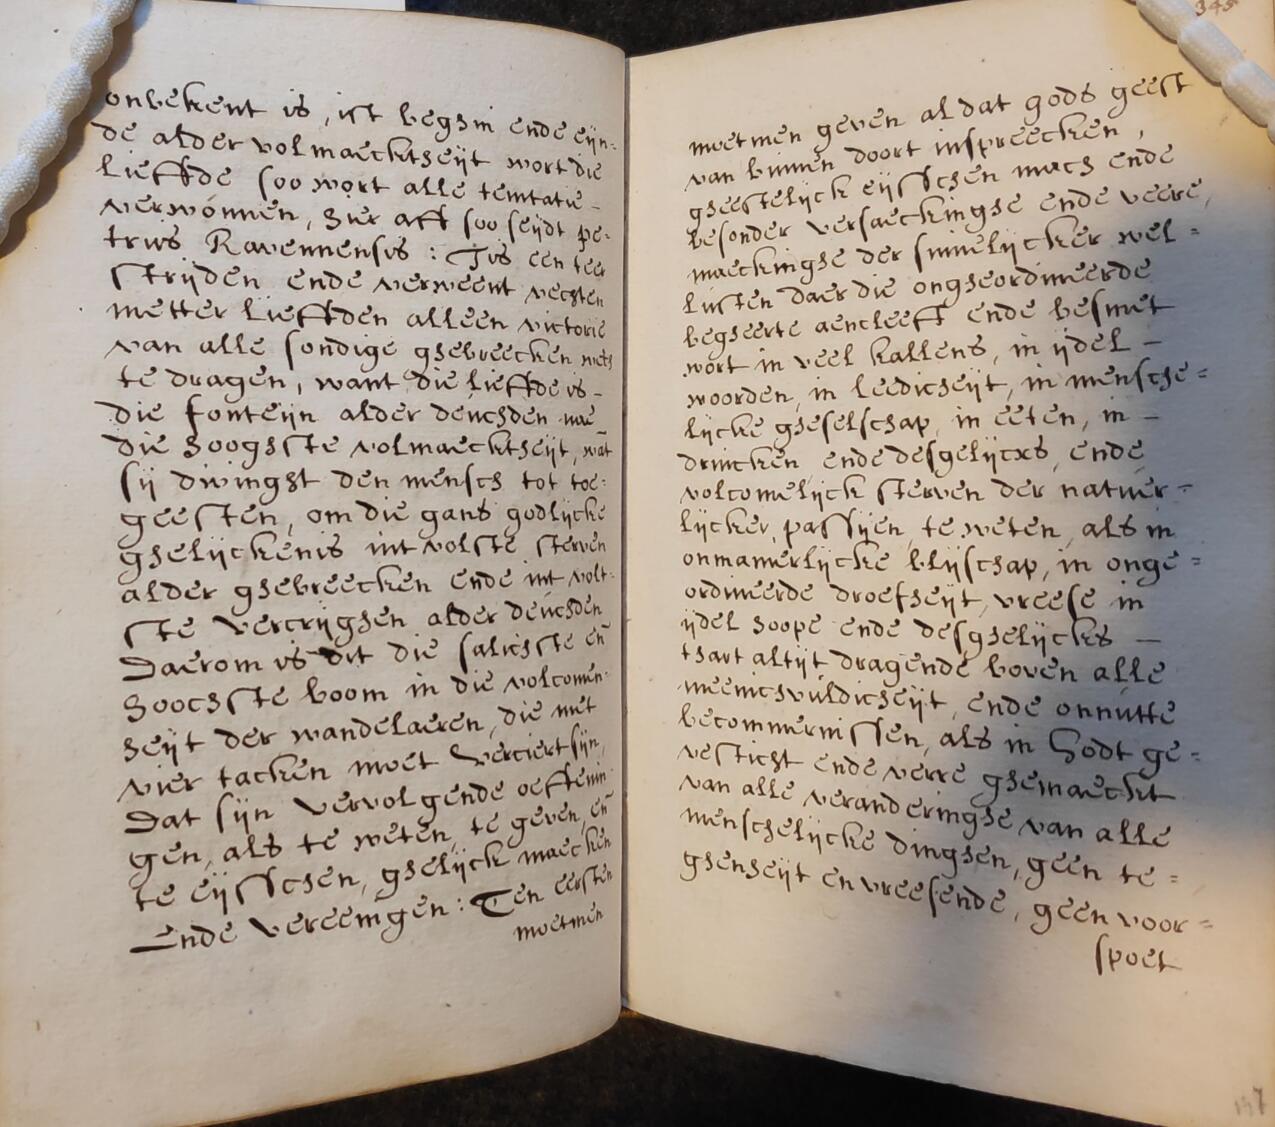 onbekent is, ist beghin ende eijn-
de alder volmaecktheijt wort die
lieffde soo wort alle temtatie -
verwonnen, hier aff soo seijdt pe-
trus Ravennensis: Tis een teer
strijden ende verweent vechten
metter lieffden alleen victorie
van alle sondige ghebreecken wech
te dragen, want die lieffde is -
die fonteijn alder deuchden
die hoogste volmaecktheijt, wāt
sij dwinght den mensch tot toe-
geesten, om die gans godlijcke
ghelijckenis int volste sterven
alder ghebreecken ende int vol-
ste vercrijghen alder deuchden
Daerom is dit die salichste eñ
hoochste boom in die volcomen-
heijt der wandelaeren, die met
vier tacken moet verciert sijn,
Dat sijn vervolgende oeffenin-
gen, als te weten, te geven, eñ
te eijsschen, ghelijck maecken
Ende vereenigen: Ten eersten
moetmen
345
moetmen geven al dat gods geest
van binnen doort inspreecken,
gheestelijck eijsschen mach ende
besonder versaeckinghe ende veere,
maeckinghe der sinnelijcker wel=
lusten daer die ongheordineerde
begheerte aencleeft ende besmet
wort in veel kallens, in ijdel -
woorden, in leedicheijt, in mensche=
lijcke gheselschap, in eeten, in -
drincken ende desgelijcxs, ende
volcomelijck sterven der natuer-
lijcker, passijen, te weten, als in
onmanierlijcke blijschap, in onge=
ordineerde droefheijt, vreese in
ijdel hoope ende desghelijcks -
thart altijt dragende boven alle
meenichvuldicheijt, ende onnutte
becommernissen, als in Godt ge=
vesticht ende verre ghemaeckt
van alle veranderinghe van alle
menschelijcke dinghen, geen te=
ghenheijt en vreesende, geen voor=
spoet